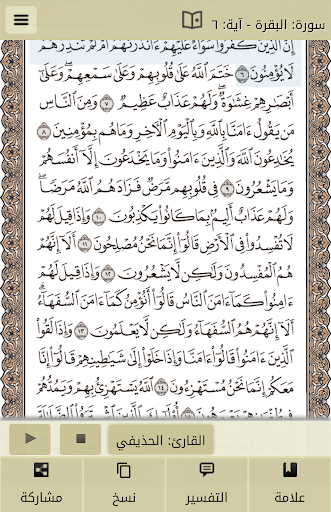 سورة: البقرة - آية: ٦
إِنَّ الَّذِينَ كَفَرُوا سَوَاءٌ عَلَيْهِمْ ءَأَنذَرْتَهُمْ أَمْ لَمْ تُنذِرْهُمْ
لَا يُؤْمِنُونَ ٦ خَتَمَ اللَّهُ عَلَىٰ قُلُوبِهِمْ وَعَلَىٰ سَمْعِهِمْ ۖ وَعَلَىٰ
أَبْصَارِهِمْ غِشَاوَةٌ ۖ وَلَهُمْ عَذَابٌ عَظِيمٌ ٧ وَمِنَ النَّاسِ
مَن يَقُولُ ءَامَنَّا بِاللَّهِ وَبِالْيَوْمِ الْآخِرِ وَمَا هُم بِمُؤْمِنِينَ ٨
يُخَادِعُونَ اللَّهَ وَالَّذِينَ ءَامَنُوا وَمَا يَخْدَعُونَ إِلَّا أَنفُسَهُمْ
وَمَا يَشْعُرُونَ ٩ فِي قُلُوبِهِم مَّرَضٌ فَزَادَهُمُ اللَّهُ مَرَضًا ۖ
وَلَهُمْ عَذَابٌ أَلِيمٌ بِمَا كَانُوا يَكْذِبُونَ ١٠ وَإِذَا قِيلَ لَهُمْ
لَا تُفْسِدُوا فِي الْأَرْضِ قَالُوا إِنَّمَا نَحْنُ مُصْلِحُونَ ١١ أَلَا إِنَّهُمْ
هُمُ الْمُفْسِدُونَ وَلَٰكِن لَّا يَشْعُرُونَ ١٢ وَإِذَا قِيلَ لَهُمْ
ءَامِنُوا كَمَا ءَامَنَ النَّاسُ قَالُوا أَنُؤْمِنُ كَمَا ءَامَنَ السُّفَهَاءُ ۗ
أَلَا إِنَّهُمْ هُمُ السُّفَهَاءُ وَلَٰكِن لَّا يَعْلَمُونَ ١٣ وَإِذَا لَقُوا
الَّذِينَ ءَامَنُوا قَالُوا ءَامَنَّا وَإِذَا خَلَوْا إِلَىٰ شَيَاطِينِهِمْ قَالُوا إِنَّا
مَعَكُمْ إِنَّمَا نَحْنُ مُسْتَهْزِءُونَ ١٤ اللَّهُ يَسْتَهْزِئُ بِهِمْ وَيَمُدُّهُمْ
القارئ: الحذيفي
علامة
التفسير
نسخ
مشاركة